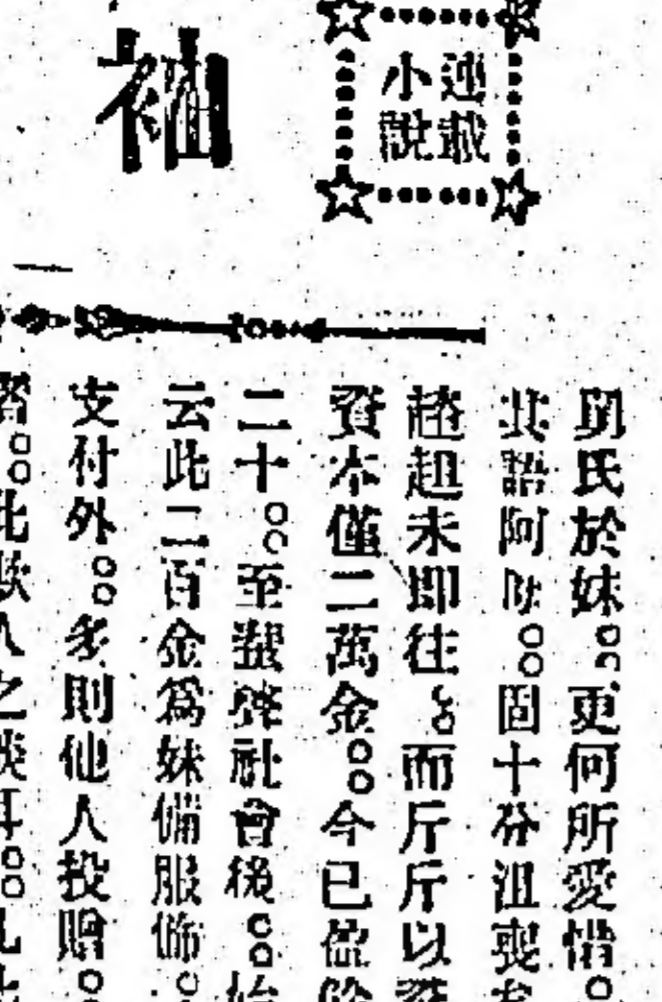 連載
小說
袖
一
劉氏於妹。更何所愛惜。
其語阿。固十分沮喪
趦趄未即往。而斤斤以
資本僅二萬金。今已盈餘
二十。至社會後。始
云此二百金爲妹備服飾。
支付外。多則他人投贈。
此款人之談耳。